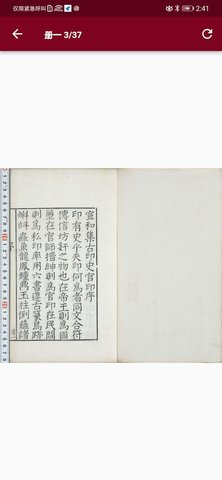 仅限紧急呼叫
2:41
册一 3/37
宣和集古印史官印序
印有史乎夫印何爲者同文合符
傳信坊奸之物也在帝王則爲國
璽在官師搢紳則爲官印在民間
則爲私印率用六書遺古篆鳥跡
蝌蚪蟲魚龍鳳鐘鼎玉柱倒薤諸